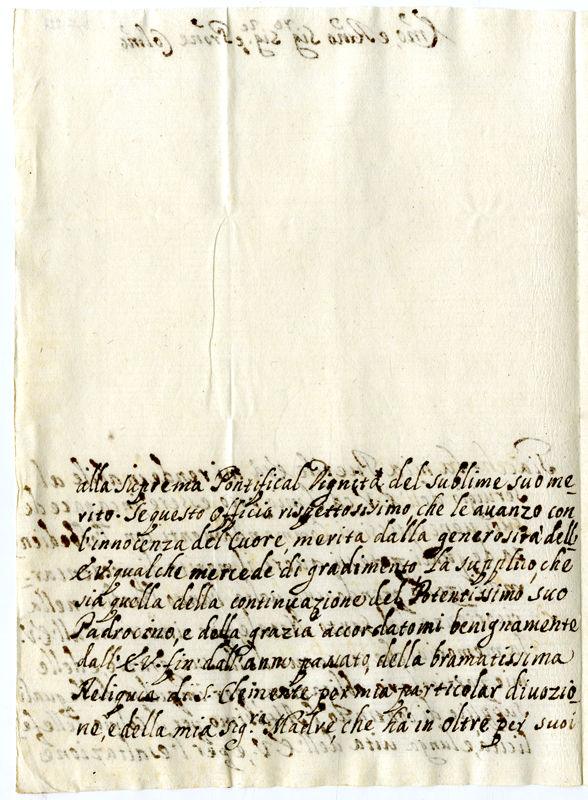 alla suprema Pontifical Dignità del sublime suo me-
rito. Se questo officio rispettosissimo, che le avanzo con
l'innocenza del Cuore, merita dalla generosità dell'
E.V. qualche mercede di gradimento La supplico, che
sia quella della continuazione del Potentissimo suo
Padrocino, e della grazia accordatomi benignamente
dall'E.V. fin dall'anno passato, della bramatissima
Reliquia di S. Clemente per mia particolar divozio-
ne, e della mia Sig.ra Madre che hà in oltre per suoi